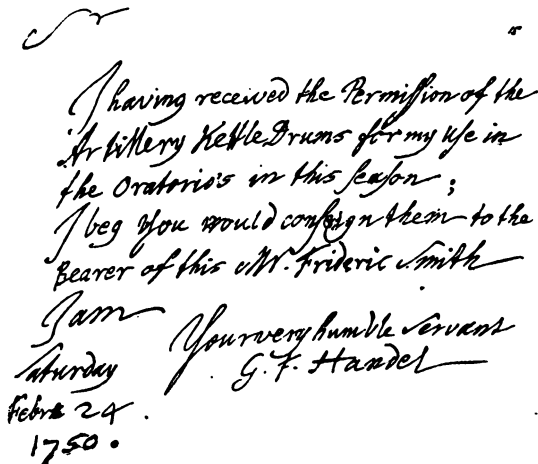 Sr
I having received the Permission of the
Artillery Kettle Drums for my use in
the Oratorio's in this season;
I beg you would consign them to the
Bearer of this Mr. Frideric Smith
I am
Your very humble Servant
G. F. Handel
Saturday
Febr 24.
1750.